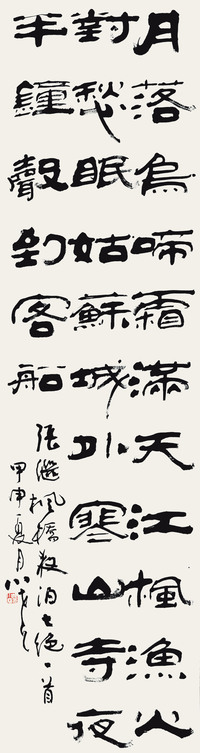 月落烏啼霜滿天江楓漁火
對愁眠姑蘇城外寒山寺夜
半鐘聲到客船
張继楓橋夜泊七绝一首
甲申夏月